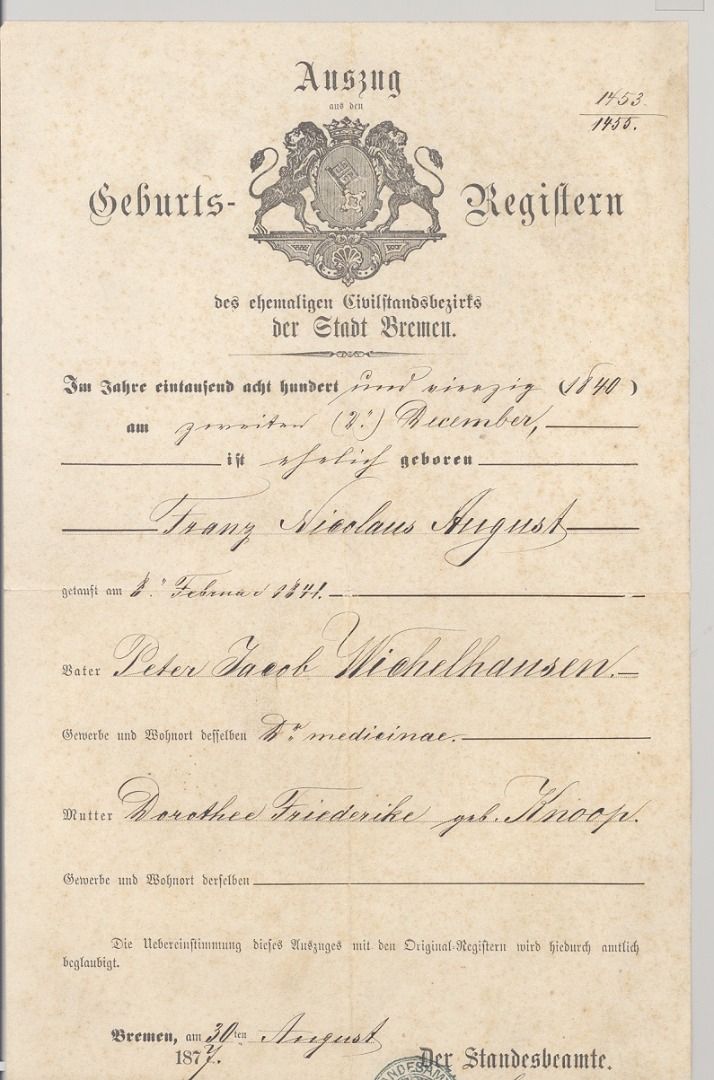 Auszug
aus den
1453.
1455.
Geburts- Registern
des ehemaligen Civilstandsbezirks
der Stadt Bremen.
Im Jahre eintausend acht hundert und vierzig (1840)
am zweiten (2.) December,
ist ehelich geboren
Franz Nicolaus August
getauft am 8. Februar 1841.
Vater Peter Jacob Wichelhausen.
Gewerbe und Wohnort desselben Dr. medicinae.
Mutter Dorothee Friederike geb. Knoop.
Gewerbe und Wohnort derselben
Die Uebereinstimmung dieses Auszuges mit den Original-Registern wird hiedurch amtlich
beglaubigt.
Bremen, am 30ten August
1877.
Der Standesbeamte.
ANDESAM